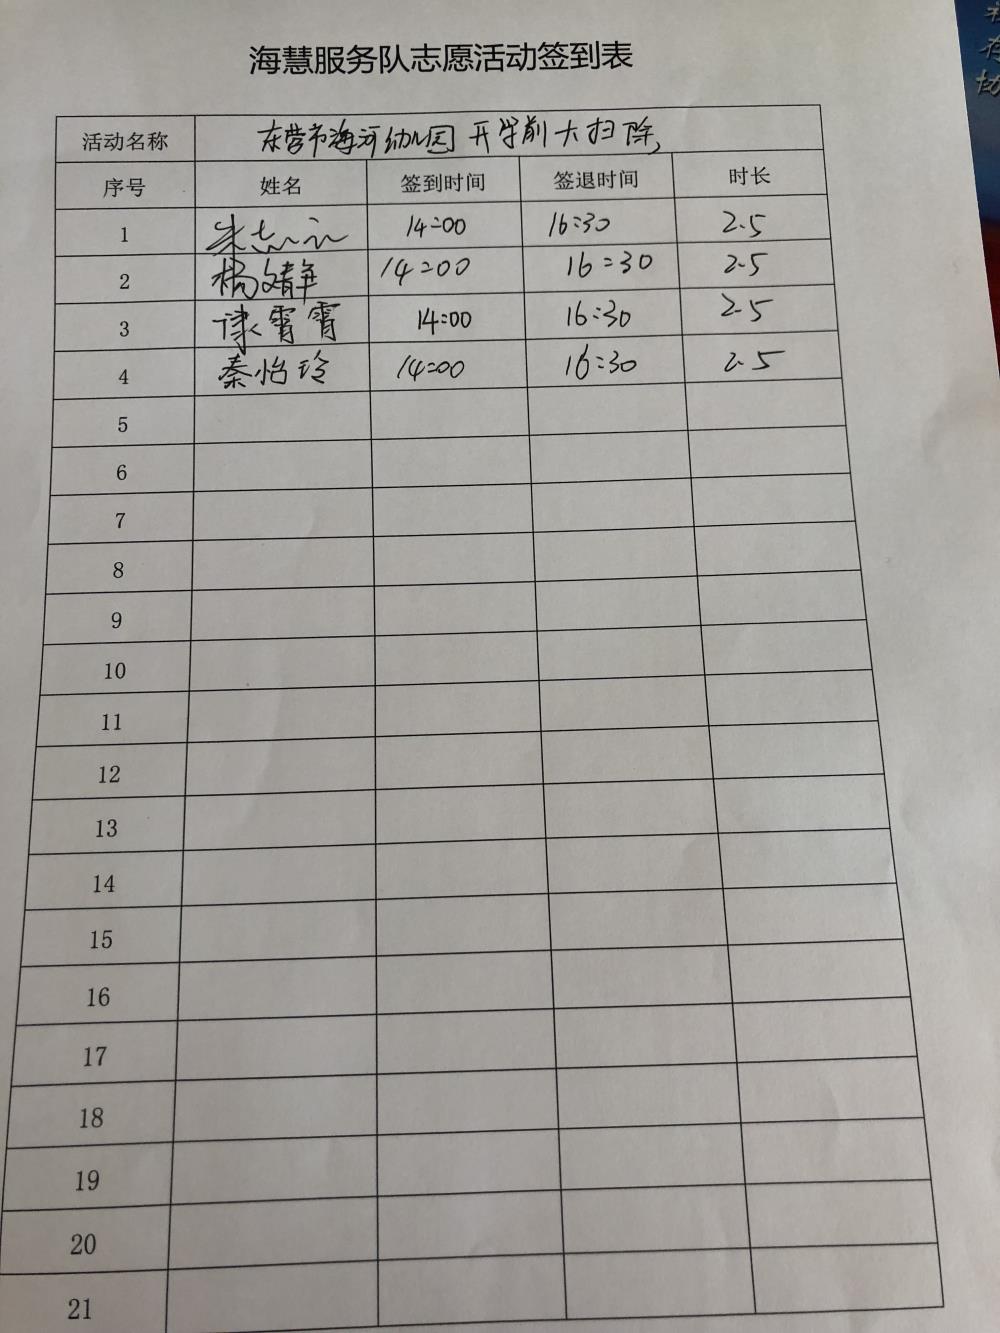 海慧服务队志愿活动签到表
活动名称 东营市海河幼儿园开学前大扫除
序号 姓名 签到时间 签退时间 时长
1 朱志 14:00 16:30 2.5
2 杨文静 14:00 16:30 2.5
3 霄霄 14:00 16:30 2.5
4 秦怡玲 14:00 16:30 2.5
5
6
7
8
9
10
11
12
13
14
15
16
17
18
19
20
21